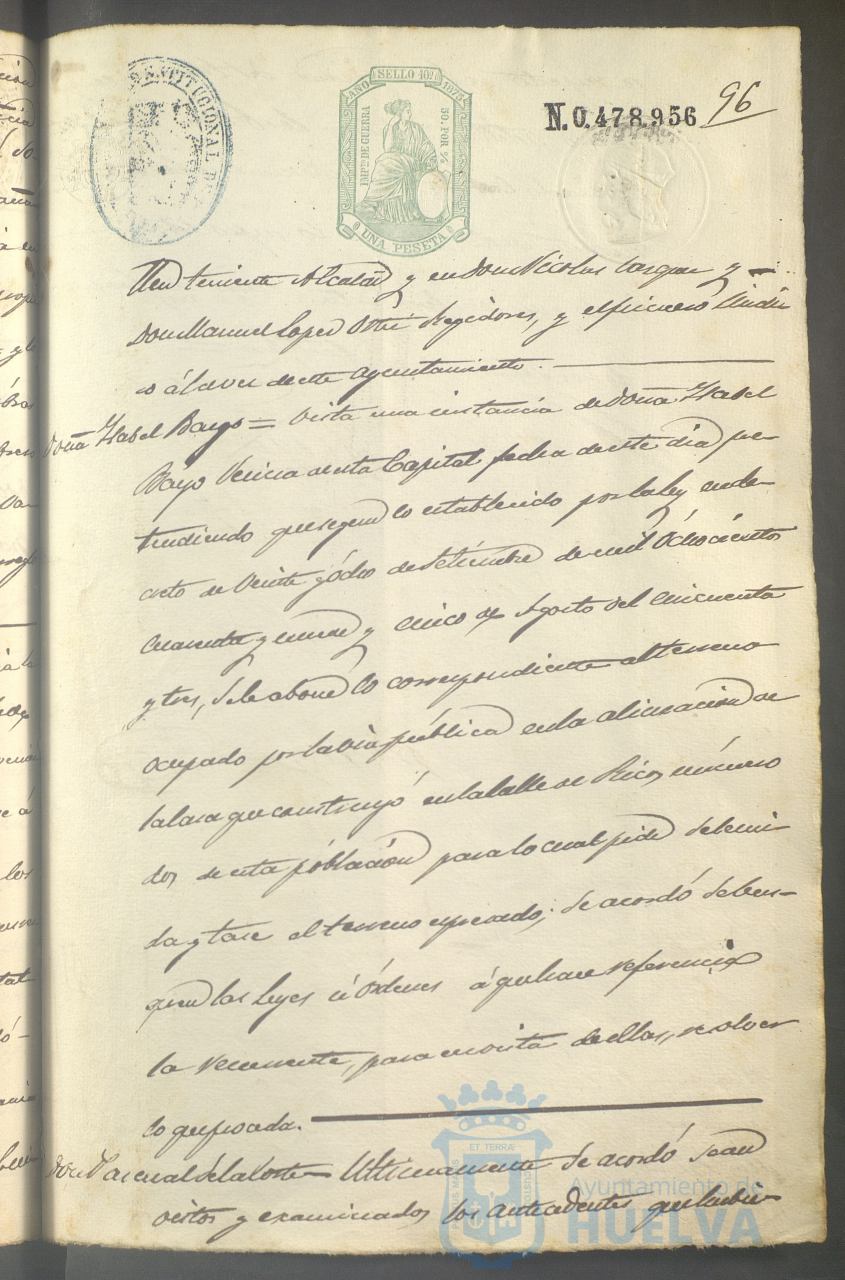 AÑO SELLO 10º 1875
IMPto DE GUERRA
50. POR %
UNA PESETA
N. 0.478.956
96
teniente Alcalde y en Don Nicolas Vazquez y
Don Manuel Lopez Regidores, y el primero Sindi
co á la vez de este Ayuntamiento.
Doña Ysabel Bayo = Vista una instancia de Doña Ysabel
Bayo Vecina de esta Capital fecha de este dia pre-
tendiendo que segun lo establecido por la ley en de-
creto de Veinte y ócho de Setiembre de mil óchocientos
cuarenta y nueve y cinco de Agosto del cincuenta
y tres, se le abone lo correspondiente al terreno
ocupado por la via pública en la alineacion de
la casa que construyó en la calle de Ricos número
dos de esta póblación para lo cual pide se le mi-
da y tase el terreno espresado; se acordó se bus-
quen las Leyes ú Ordenes á que hace referencia
la recurrente, para en vista de ellas, resolver
lo que proceda.
Don Pascual de la Corte = Ultimamente se acordó sean
vistos y examinados los antecedentes que hubie-
ET TERRÆ
Ayuntamiento de
HUELVA